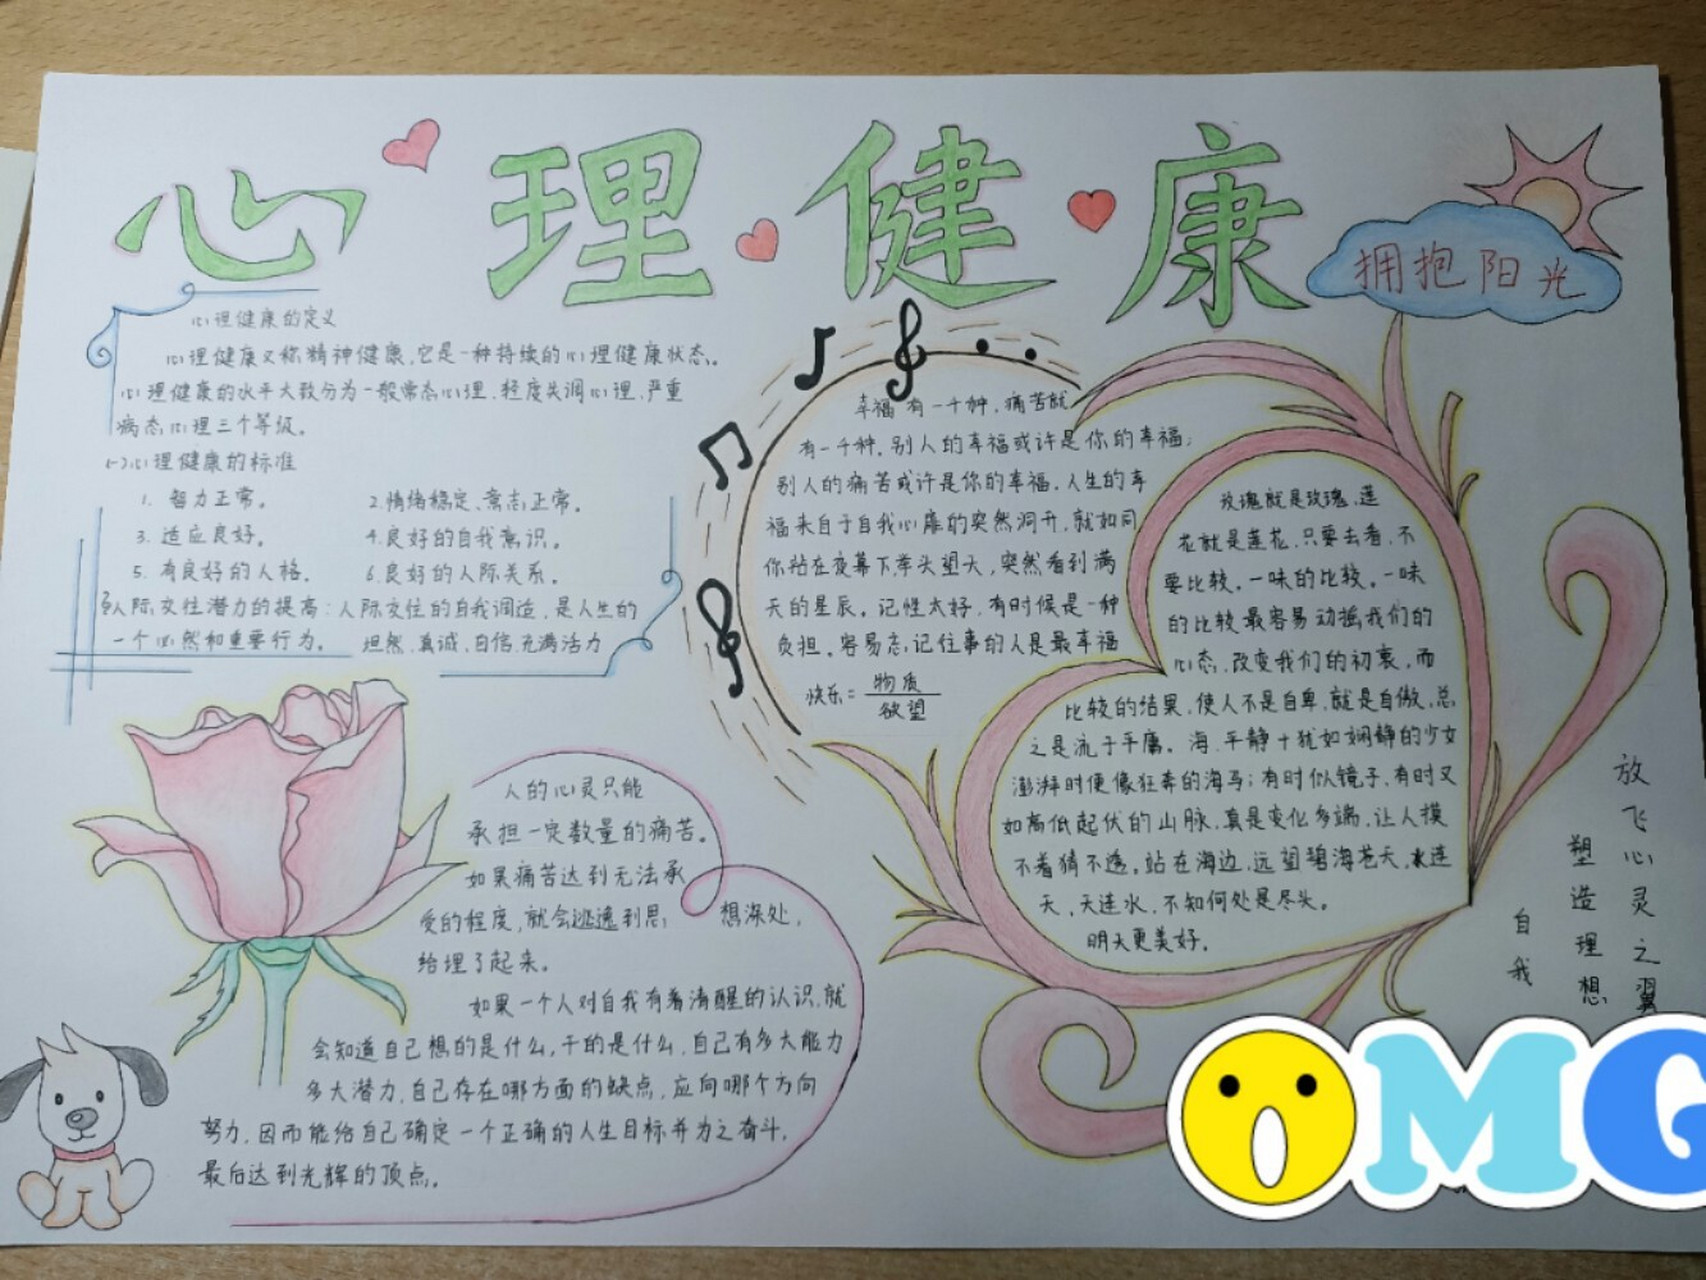 心理健康
拥抱阳光
心理健康的定义
心理健康又称精神健康,它是一种持续的心理健康状态。
心理健康的水平大致分为一般常态心理、轻度失调心理、严重
病态心理三个等级。
(一)心理健康的标准
1. 智力正常。 2.情绪稳定、意志正常。
3. 适应良好。 4.良好的自我意识。
5. 有良好的人格。 6.良好的人际关系。
人际交往潜力的提高:人际交往的自我调造,是人生的
一个必然和重要行为。 坦然、真诚、自信、充满活力
幸福有一千种,痛苦就
有一千种,别人的幸福或许是你的幸福;
别人的痛苦或许是你的幸福,人生的幸
福来自于自我心扉的突然洞开,就如同
你站在夜幕下,举头望天,突然看到满
天的星辰。记性太好,有时候是一种
负担。容易忘记往事的人是最幸福
快乐=物质
欲望
玫瑰就是玫瑰,莲
花就是莲花,只要去看,不
要比较。一味的比较,一味
的比较最容易动摇我们的
心态,改变我们的初衷,而
比较的结果,使人不是自卑,就是自傲,总
之是流于平庸。海,平静十犹如娴静的少女
澎湃时便像狂奔的海马;有时似镜子,有时又
如高低起伏的山脉,真是变化多端,让人摸
不着猜不透。站在海边,远望碧海苍天,水连
天,天连水,不知何处是尽头。
明天更美好。
人的心灵只能
承担一定数量的痛苦。
如果痛苦达到无法承
受的程度,就会逃逸到思 想深处,
给埋了起来。
如果一个人对自我有着清醒的认识,就
会知道自己想的是什么,干的是什么,自己有多大能力
多大潜力,自己存在哪方面的缺点,应向哪个方向
努力,因而能给自己确定一个正确的人生目标并为之奋斗,
最后达到光辉的顶点。
放飞心灵之翼
塑造理想
自我
OMG